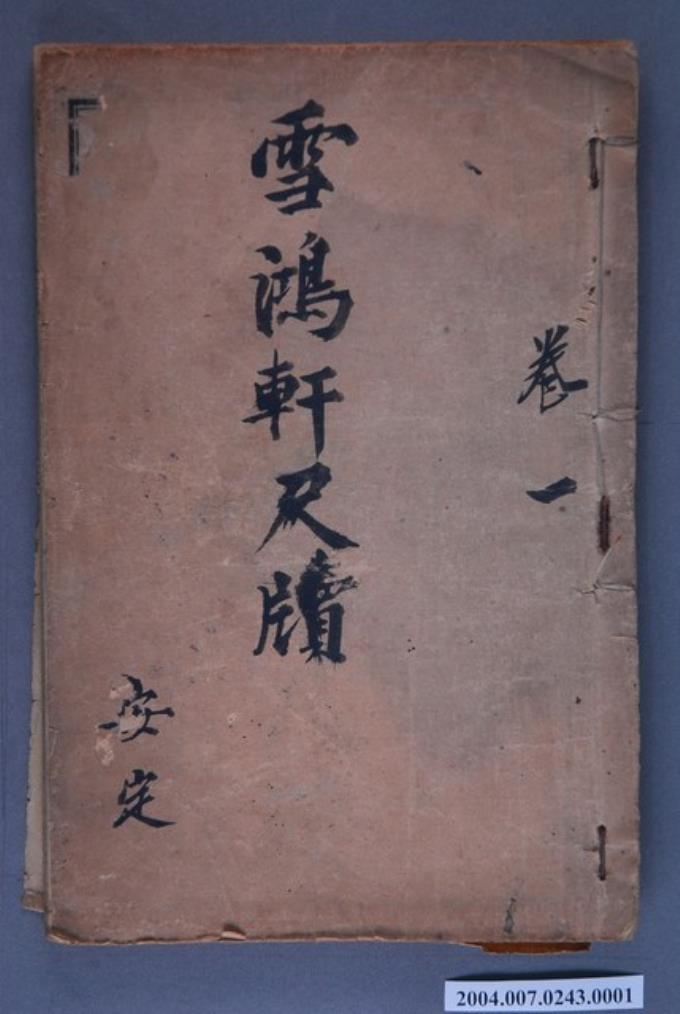 卷一
雪鴻軒尺牘
安定
2004.007.0243.0001